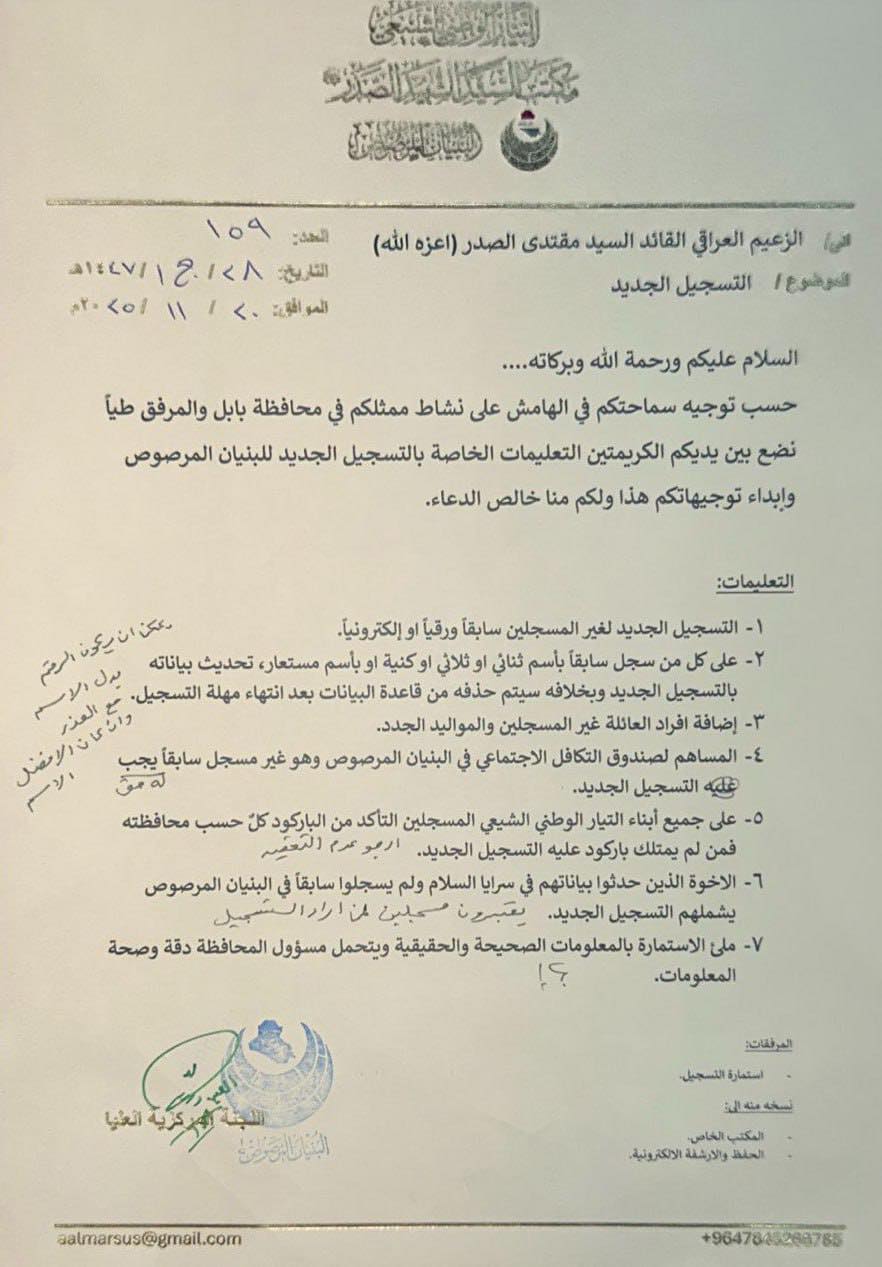 التيار الوطني الشيعي
مكتب السيد الشهيد الصدر
البنيان المرصوص
الى/ الزعيم العراقي القائد السيد مقتدى الصدر (اعزه الله)
العدد: ١٥٩
الموضوع/ التسجيل الجديد
التاريخ: ٢٨/ ج ١ /١٤٤٧هـ
الموافق: ٢٠ / ١١ /٢٠٢٥م
السلام عليكم ورحمة الله وبركاته....
حسب توجيه سماحتكم في الهامش على نشاط ممثلكم في محافظة بابل والمرفق طياً
نضع بين يديكم الكريمتين التعليمات الخاصة بالتسجيل الجديد للبنيان المرصوص
وإبداء توجيهاتكم هذا ولكم منا خالص الدعاء.
التعليمات:
١- التسجيل الجديد لغير المسجلين سابقاً ورقياً او إلكترونياً.
٢- على كل من سجل سابقاً بأسم ثنائي او ثلاثي او كنية او بأسم مستعار، تحديث بياناته
بالتسجيل الجديد وبخلافه سيتم حذفه من قاعدة البيانات بعد انتهاء مهلة التسجيل.
يمكن ان يكون الرقم
بدل الاسم
مع العذر
وان كان الافضل
الاسم
٣- إضافة افراد العائلة غير المسجلين والمواليد الجدد.
٤- المساهم لصندوق التكافل الاجتماعي في البنيان المرصوص وهو غير مسجل سابقاً يجب
عليه التسجيل الجديد.
له حق
٥- على جميع أبناء التيار الوطني الشيعي المسجلين التأكد من الباركود كلٌ حسب محافظته
فمن لم يمتلك باركود عليه التسجيل الجديد. ارجو عدم التعقيد
٦- الاخوة الذين حدثوا بياناتهم في سرايا السلام ولم يسجلوا سابقاً في البنيان المرصوص
يشملهم التسجيل الجديد. يعتبرون مسجلين لمن اراد التسجيل
٧- ملئ الاستمارة بالمعلومات الصحيحة والحقيقية ويتحمل مسؤول المحافظة دقة وصحة
المعلومات. ؟!
المرفقات:
- استمارة التسجيل.
نسخه منه الى:
- المكتب الخاص.
- الحفظ والارشفة الالكترونية.
اللجنة المركزية العليا
البنيان المرصوص
aalmarsus@gmail.com